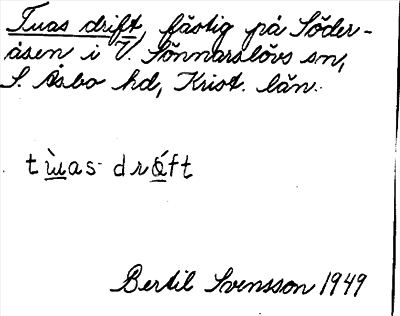 Tuas drift, fästig på Söder-
åsen i V. Sönnarslövs sn,
S. Åsbo hd, Krist. län.
tùas dróft
Bertil Svensson 1949